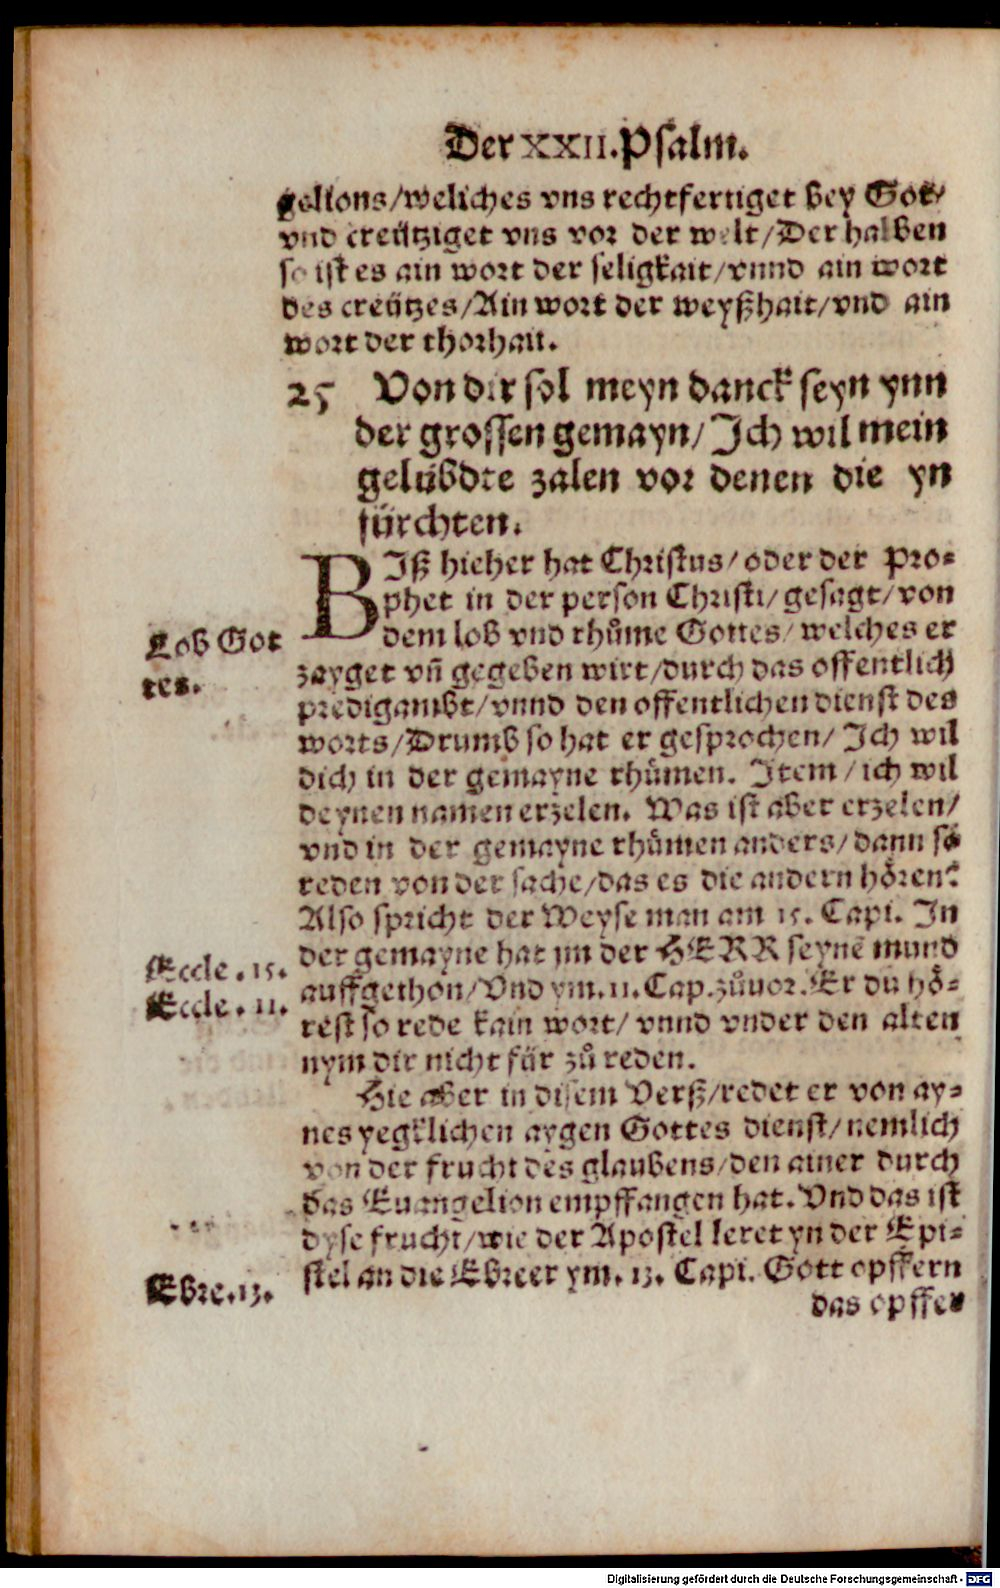 Der XXII. Psalm.
gelions/weliches vns rechtfertiget bey Got/
vnd creütziget vns vor der welt/Der halben
so ist es ain wort der seligkait/vnnd ain wort
des creützes/Ain wort der weyßhait/vnd ain
wort der thorhait.
25 Von dir sol meyn danck seyn ynn
der grossen gemayn/Ich wil mein
gelübdte zalen vor denen die yn
fürchten.
BIß hieher hat Christus/oder der Pro-
phet in der person Christi/gesagt/von
dem lob vnd rhůme Gottes/welches er
Lob Got
zayget vñ gegeben wirt/durch das offentlich
tes.
predigambt/vnnd den offentlichen dienst des
worts/Drumb so hat er gesprochen/Ich wil
dich in der gemayne rhůmen. Item/ich wil
deynen namen erzelen. Was ist aber erzelen/
vnd in der gemayne rhůmen anders/dann so
reden von der sache/das es die andern hören?
Also spricht der Weyse man am 15. Capi. In
der gemayne hat jm der HERR seynē mund
Eccle. 15.
auffgethon/Vnd ym. 11. Cap. zůuor. Er du hö-
Eccle. 11.
rest so rede kain wort/vnnd vnder den alten
nym dir nicht für zů reden.
Hie aber in disem Verß/redet er von ay-
nes yegklichen aygen Gottes dienst/nemlich
von der frucht des glaubens/den ainer durch
das Euangelion empffangen hat. Vnd das ist
dyse frucht/wie der Apostel leret yn der Epi-
stel an die Ebreer ym. 13. Capi. Gott opffern
Ebre. 13.
das opffer
Digitalisierung gefördert durch die Deutsche Forschungsgemeinschaft - DFG